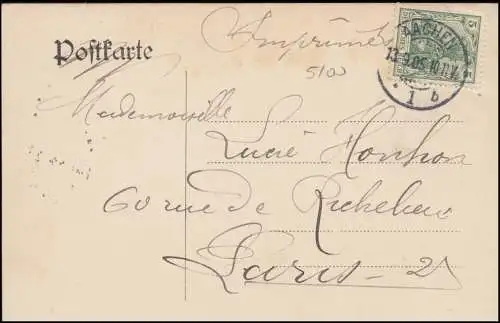 Postkarte
Imprimés
5/00
5
AACHEN
1 b
Mademoiselle
Lucie Honhon
60 rue de Richelieu
Paris - 2